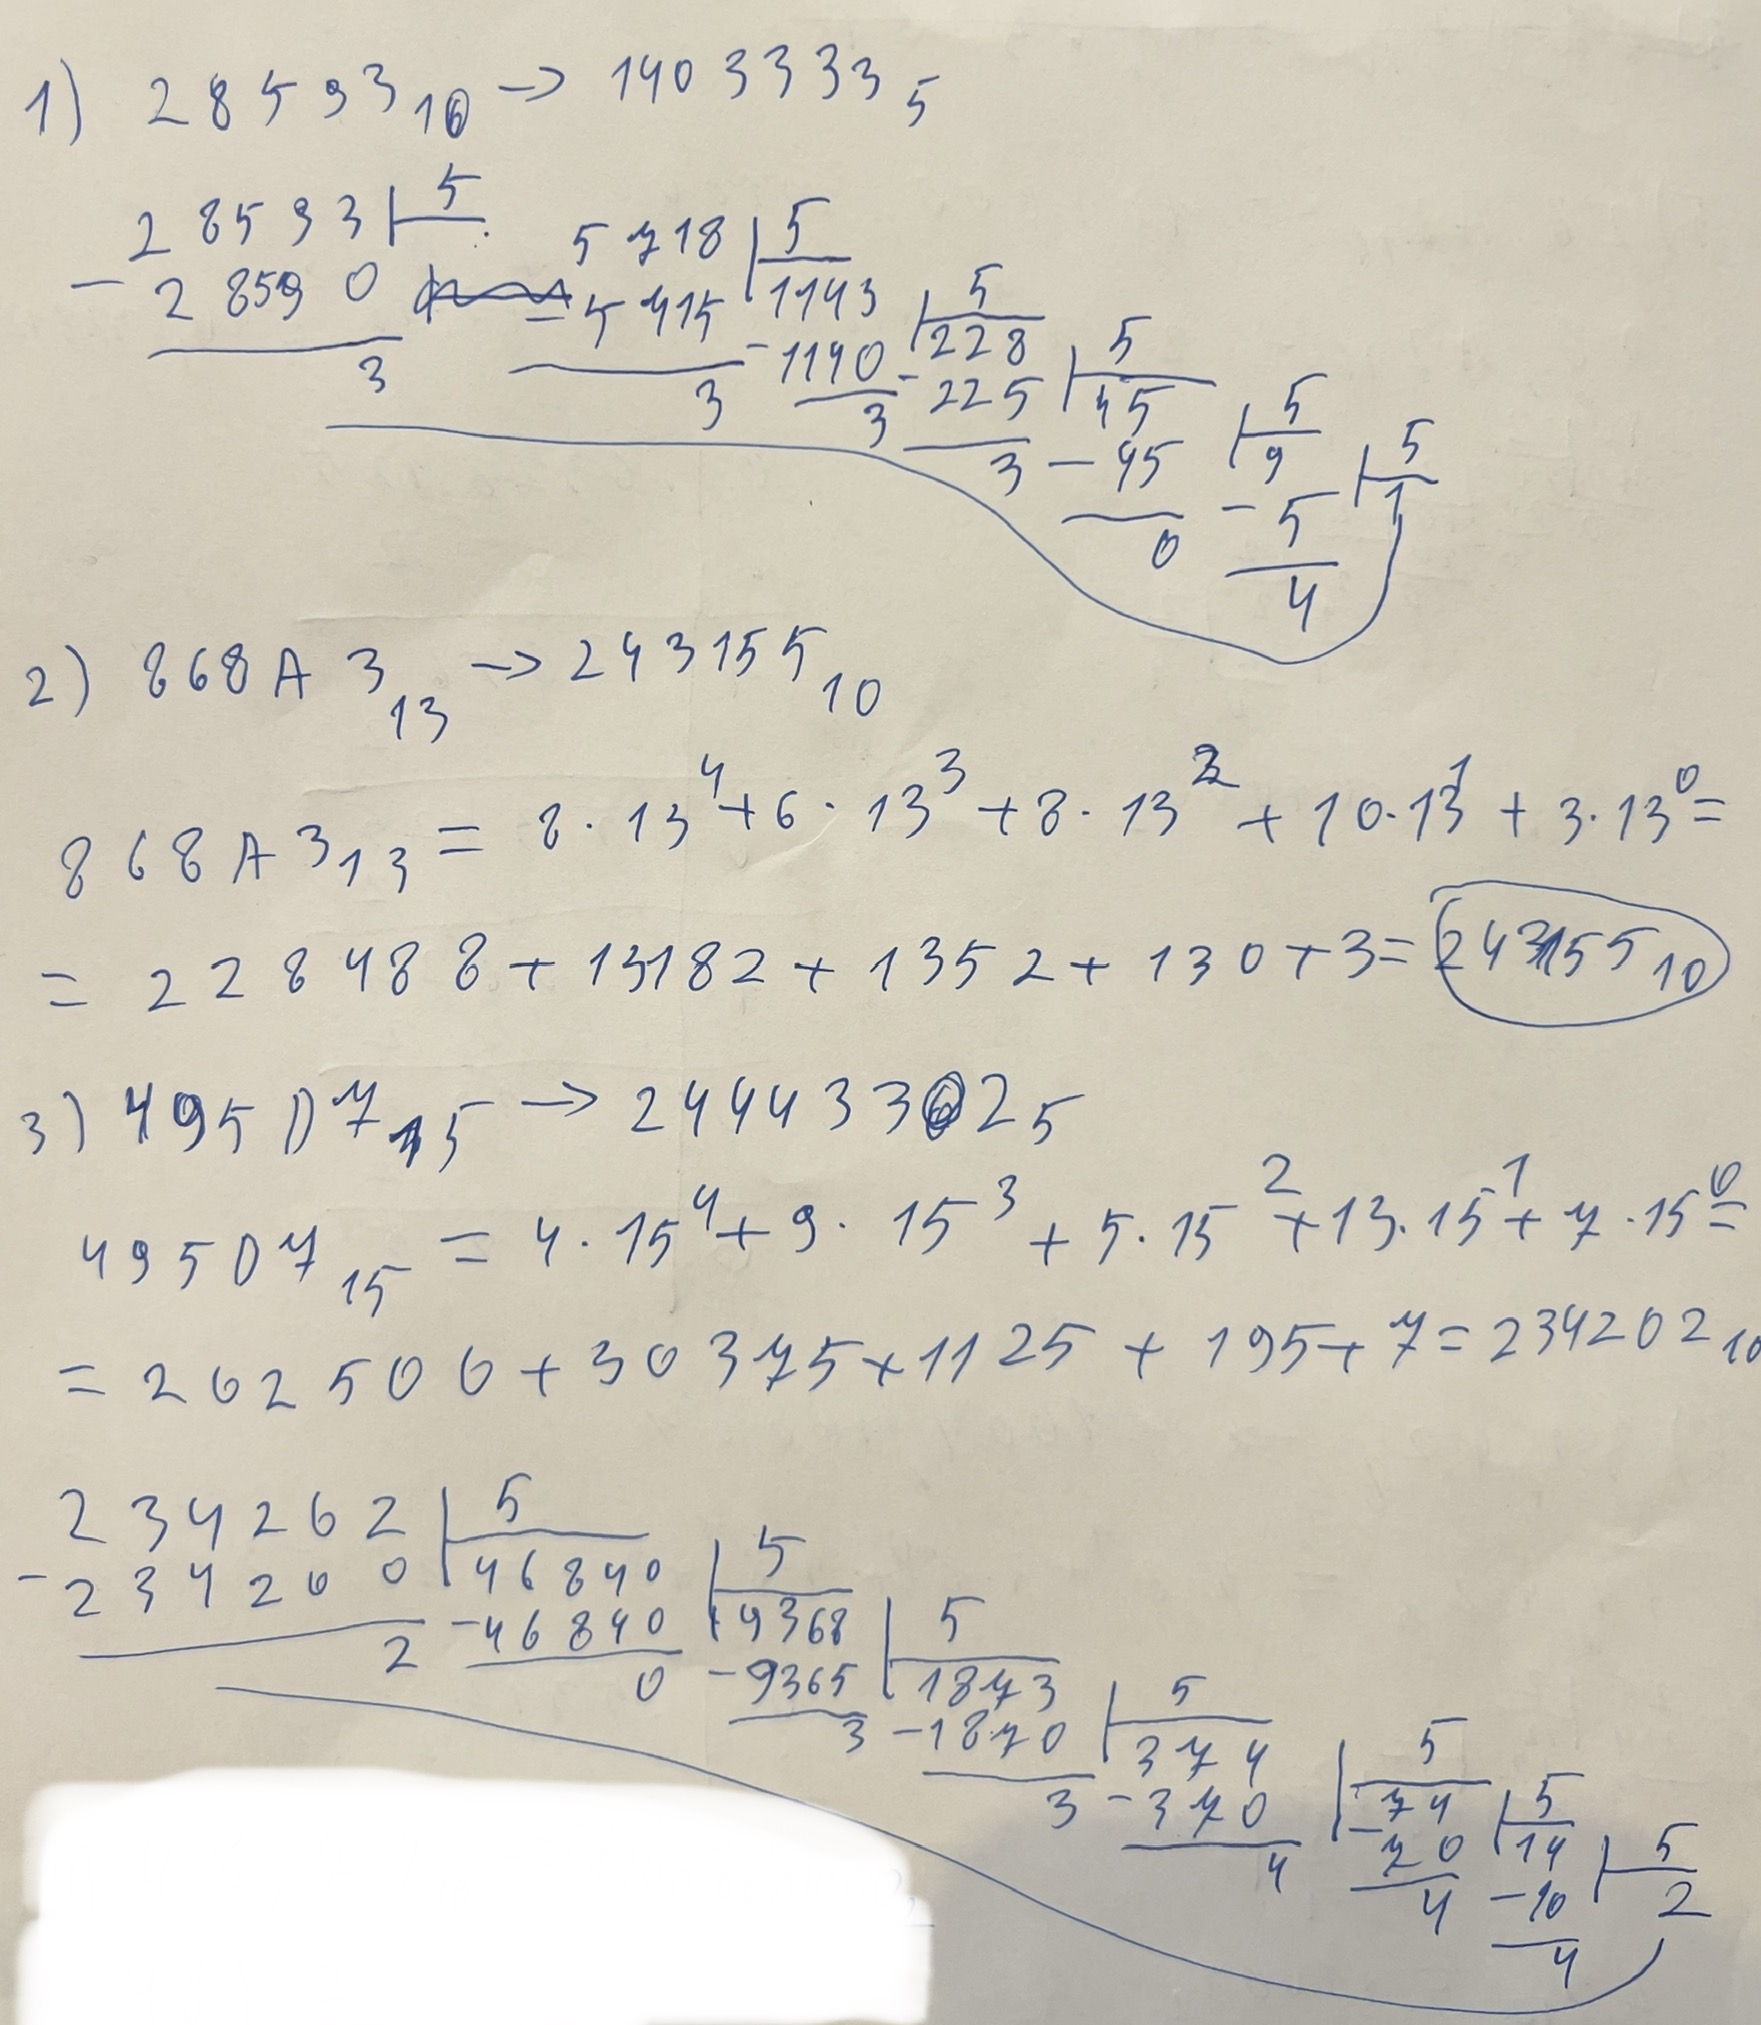 1) 28593₁₀ → 1403333₅
28593 | 5
− 28590
3
5718 | 5
− 5715 | 1143 | 5
3 − 1140 | 228 | 5
3 − 225 | 45 | 5
3 − 45 | 9 | 5
0 − 5 | 1
4
2) 868A3₁₃ → 243155₁₀
868A3₁₃ = 8·13⁴ + 6·13³ + 8·13² + 10·13¹ + 3·13⁰ =
= 228488 + 13182 + 1352 + 130 + 3 = 243155₁₀
3) 495D7₁₅ → 24443302₅
495D7₁₅ = 4·15⁴ + 9·15³ + 5·15² + 13·15¹ + 7·15⁰ =
= 202500 + 30375 + 1125 + 195 + 7 = 234202₁₀
234202 | 5
− 234200 | 46840 | 5
2 − 46840 | 9368 | 5
0 − 9365 | 1873 | 5
3 − 1870 | 374 | 5
3 − 370 | 74 | 5
4 − 70 | 14 | 5
4 − 10 | 2
4